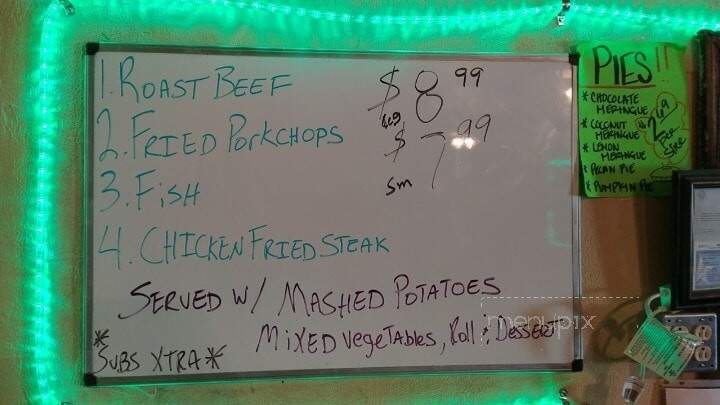 1. ROAST BEEF
$8.99
reg
2. FRIED PORKCHOPS
$7.99
sm
3. FISH
4. CHICKEN FRIED STEAK
SERVED W/ MASHED POTATOES
MIXED VegeTABLes, Roll & DESSERT
*SUBS XTRA*
PIES!!
* CHOCOLATE
MERINGUE
* COCONUT
MERINGUE
* LEMON
MERINGUE
* PECAN PIE
* PUMPKIN PIE
menupix